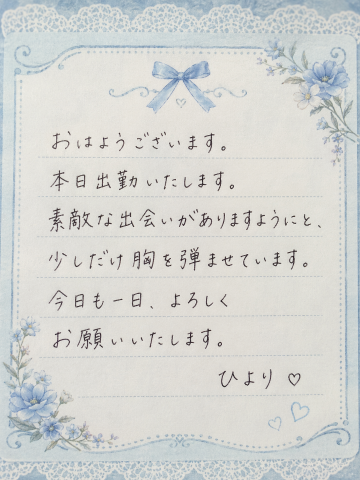 おはようございます。
本日出勤いたします。
素敵な出会いがありますようにと、
少しだけ胸を弾ませています。
今日も一日、よろしく
お願いいたします。
ひより♡